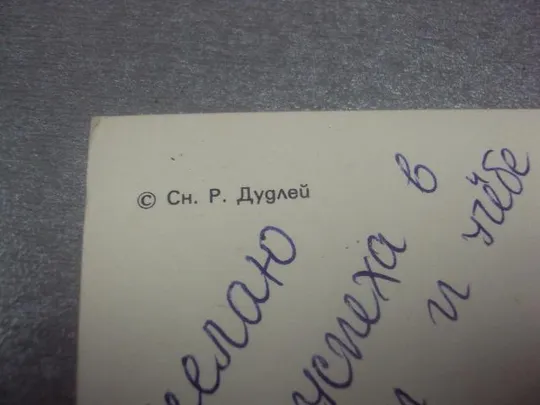 © Сн. Р. Дудлей
желаю
успеха в
и учёбе